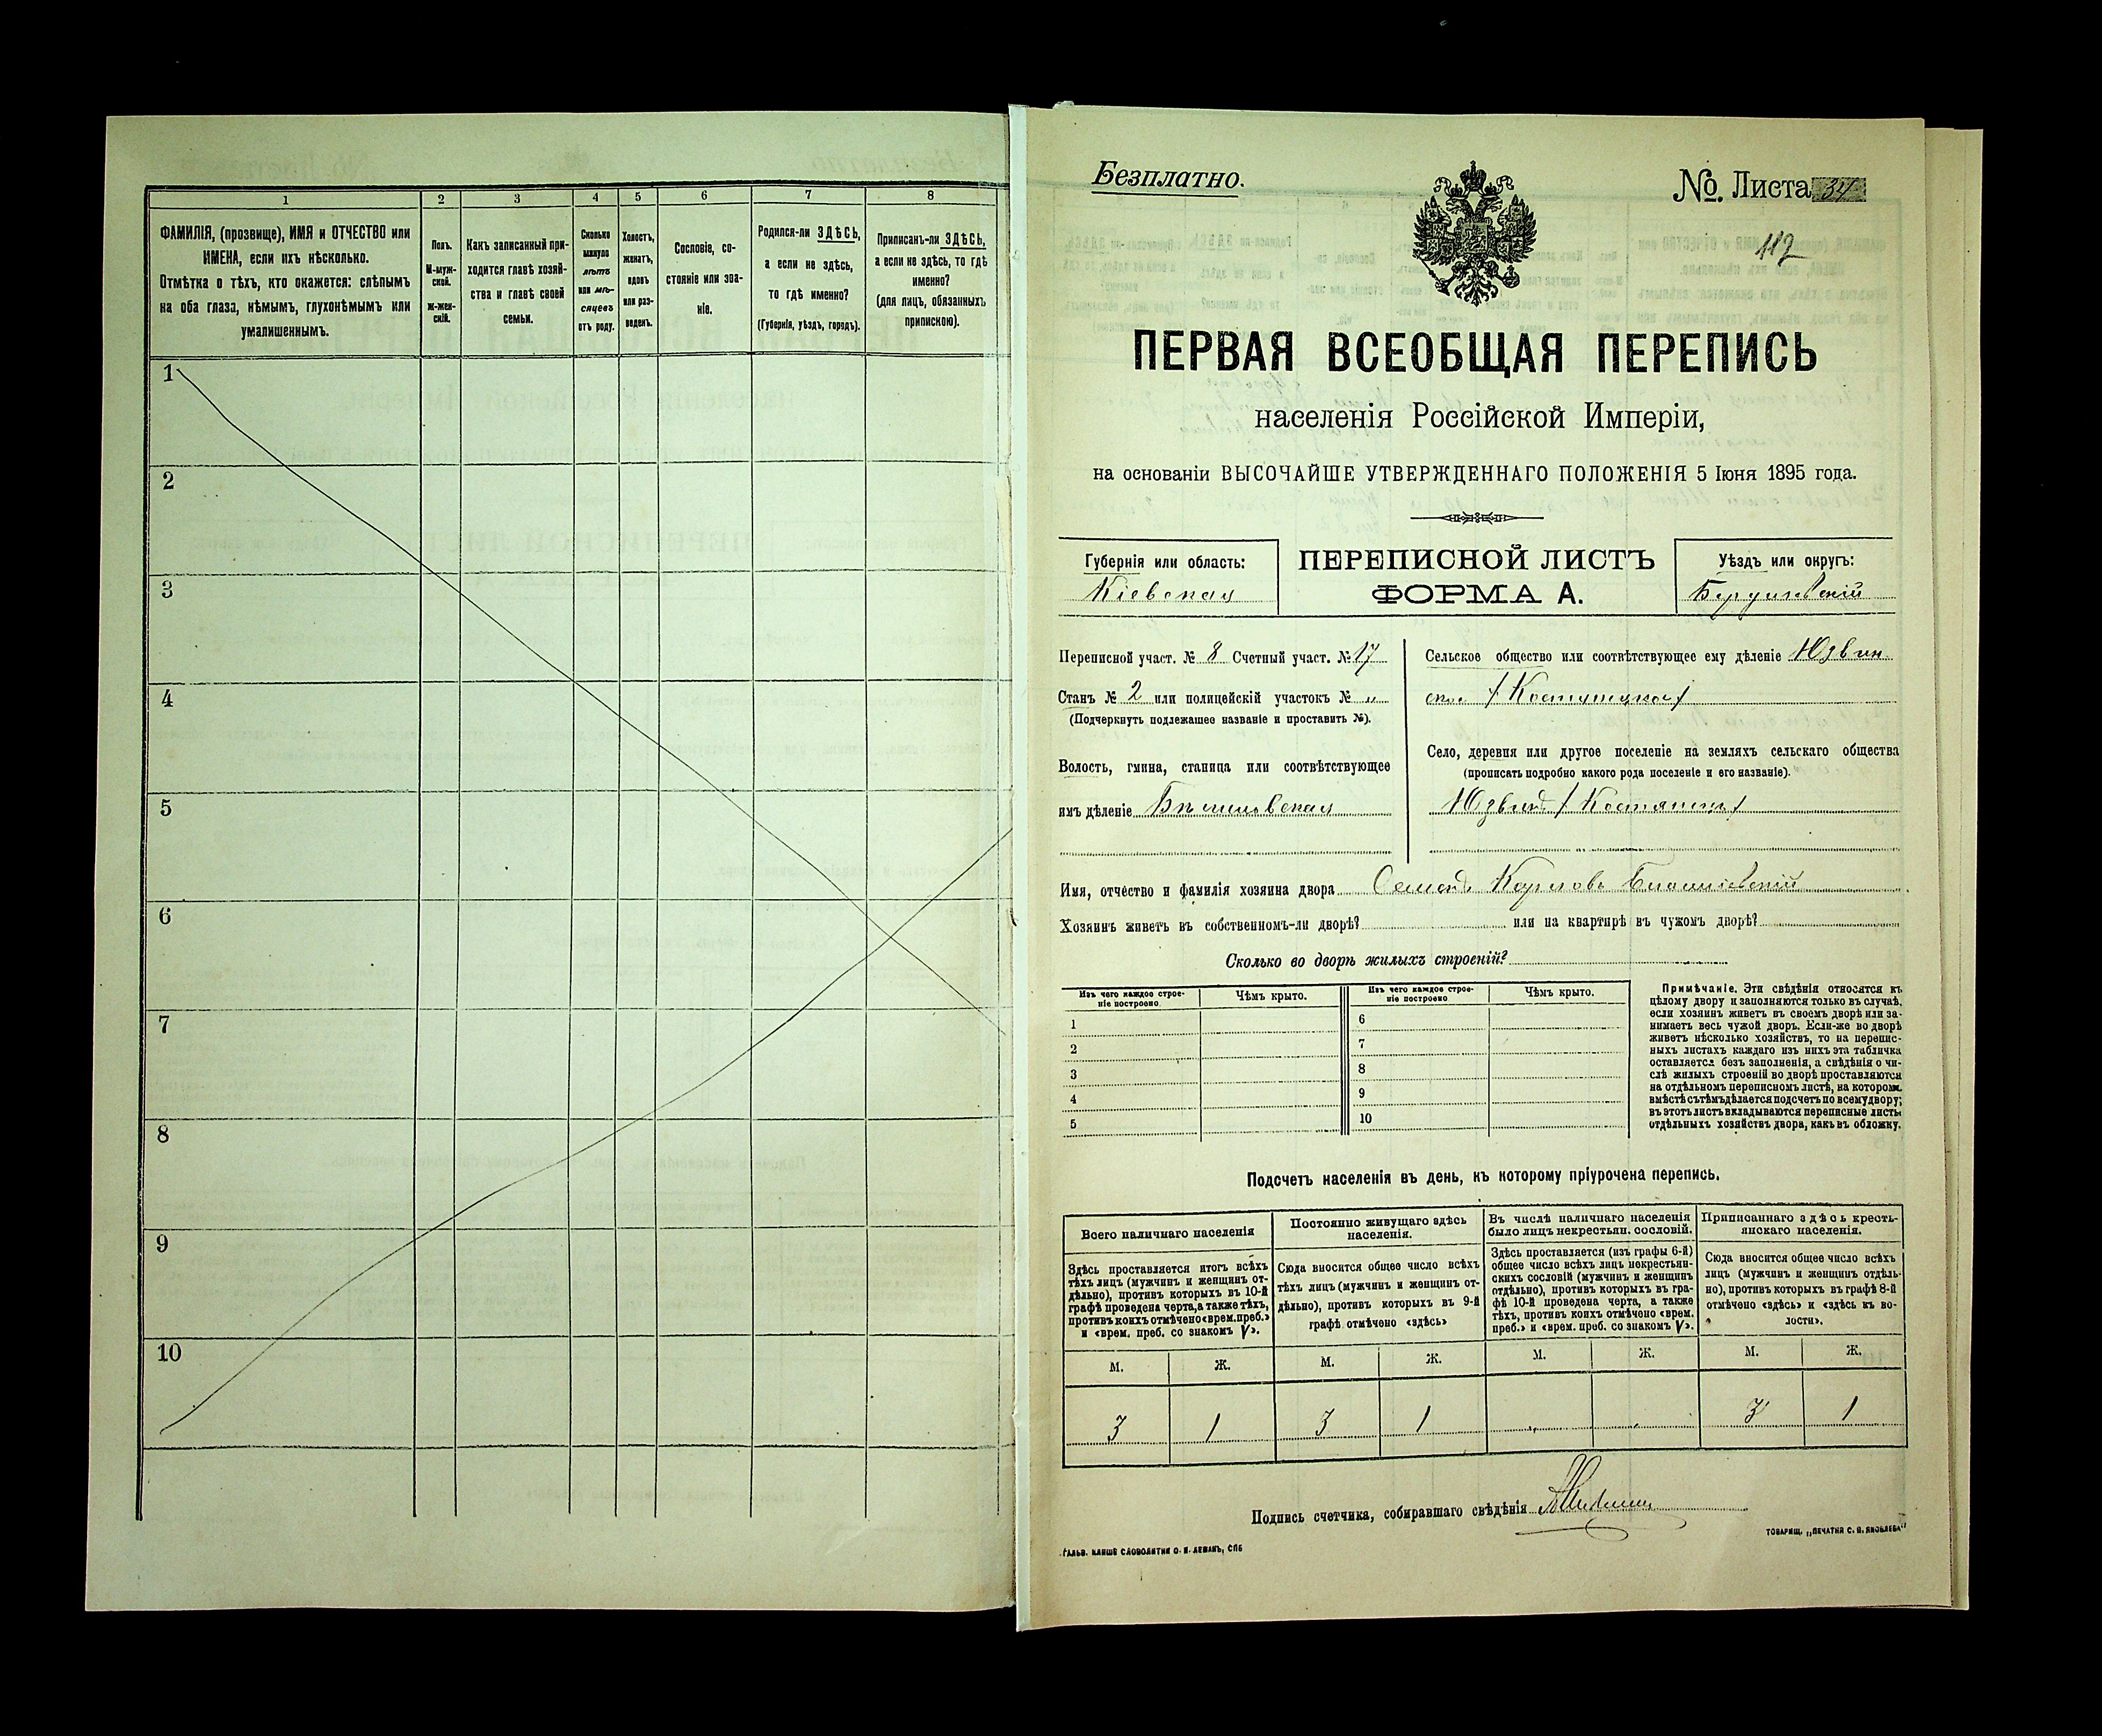 1
2
3
4
5
6
7
8
ФАМИЛІЯ, (прозвище), ИМЯ и ОТЧЕСТВО или
ИМЕНА, если ихъ нѣсколько.
Отмѣтка о тѣхъ, кто окажется: слѣпымъ
на оба глаза, нѣмымъ, глухонѣмымъ или
умалишеннымъ.
Полъ.
М-муж-
ской.
Ж-жен-
скій.
Какъ записанный при-
ходится главѣ хозяй-
ства и главѣ своей
семьи.
Сколько
минуло
лѣтъ
или мѣ-
сяцевъ
отъ роду.
Холостъ,
женатъ,
вдовъ
или раз-
веденъ.
Сословіе, со-
стояніе или зва-
ніе.
Родился-ли ЗДѢСЬ,
а если не здѣсь,
то гдѣ именно?
(Губернія, уѣздъ, городъ).
Приписанъ-ли ЗДѢСЬ,
а если не здѣсь, то гдѣ
именно?
(для лицъ, обязанныхъ
припискою).
1
2
3
4
5
6
7
8
9
10
Безплатно.
№. Листа 34
112
ПЕРВАЯ ВСЕОБЩАЯ ПЕРЕПИСЬ
населенія Россійской Имперіи,
на основаніи ВЫСОЧАЙШЕ УТВЕРЖДЕННАГО ПОЛОЖЕНІЯ 5 Іюня 1895 года.
Губернія или область:
Кіевская
ПЕРЕПИСНОЙ ЛИСТЪ
ФОРМА А.
Уѣздъ или округъ:
Бердичевскій
Переписной участ. № 8 Счетный участ. № 17
Станъ № 2 или полицейскій участокъ № „
(Подчеркнуть подлежащее названіе и проставить №).
Волость, гмина, станица или соотвѣтствующее
имъ дѣленіе Бѣлиловская
Сельское общество или соотвѣтствующее ему дѣленіе Юзвин
ское
Село, деревня или другое поселеніе на земляхъ сельскаго общества
(прописать подробно какого рода поселеніе и его названіе).
Имя, отчество и фамилія хозяина двора Семенъ Карповъ
Хозяинъ живетъ въ собственномъ-ли дворѣ? или на квартирѣ въ чужомъ дворѣ?
Сколько во дворѣ жилыхъ строеній?
Изъ чего каждое строе-
ніе построено
Чѣмъ крыто.
Изъ чего каждое строе-
ніе построено
Чѣмъ крыто.
1
2
3
4
5
6
7
8
9
10
Примѣчаніе. Эти свѣдѣнія относятся къ
цѣлому двору и заполняются только въ случаѣ,
если хозяинъ живетъ въ своемъ дворѣ или за-
нимаетъ весь чужой дворъ. Если-же во дворѣ
живетъ нѣсколько хозяйствъ, то на перепис-
ныхъ листахъ каждаго изъ нихъ эта табличка
оставляется безъ заполненія, а свѣдѣнія о чи-
слѣ жилыхъ строеній во дворѣ проставляются
на отдѣльномъ переписномъ листѣ, на которомъ
вмѣстѣ съ тѣмъ дѣлается подсчетъ по всему двору;
въ этотъ листъ вкладываются переписные листы
отдѣльныхъ хозяйствъ двора, какъ въ обложку.
Подсчетъ населенія въ день, къ которому пріурочена перепись.
Всего наличнаго населенія
Здѣсь проставляется итогъ всѣхъ
тѣхъ лицъ (мужчинъ и женщинъ от-
дѣльно), противъ которыхъ въ 10-й
графѣ проведена черта, а также тѣхъ,
противъ коихъ отмѣчено «врем. преб.»
и «врем. преб. со знакомъ V».
Постоянно живущаго здѣсь
населенія.
Сюда вносится общее число всѣхъ
тѣхъ лицъ (мужчинъ и женщинъ от-
дѣльно), противъ которыхъ въ 9-й
графѣ отмѣчено «здѣсь»
Въ числѣ наличнаго населенія
было лицъ некрестьян. сословій.
Здѣсь проставляется (изъ графы 6-й)
общее число всѣхъ лицъ некрестьян-
скихъ сословій (мужчинъ и женщинъ
отдѣльно), противъ которыхъ въ гра-
фѣ 10-й проведена черта, а также
тѣхъ, противъ коихъ отмѣчено «врем.
преб.» и «врем. преб. со знакомъ V».
Приписаннаго здѣсь кресть-
янскаго населенія.
Сюда вносится общее число всѣхъ
лицъ (мужчинъ и женщинъ отдѣль-
но), противъ которыхъ въ графѣ 8-й
отмѣчено «здѣсь» и «здѣсь къ во-
лости».
М. Ж. М. Ж. М. Ж. М. Ж.
3 1 3 1 3 1
Подпись счетчика, собиравшаго свѣдѣнія
ГАЛЬВ. КЛИШЕ СЛОВОЛИТНИ О. И. ЛЕМАНЪ, СПБ
ТОВАРИЩ. „ПЕЧАТНЯ С. П. ЯКОВЛЕВА"